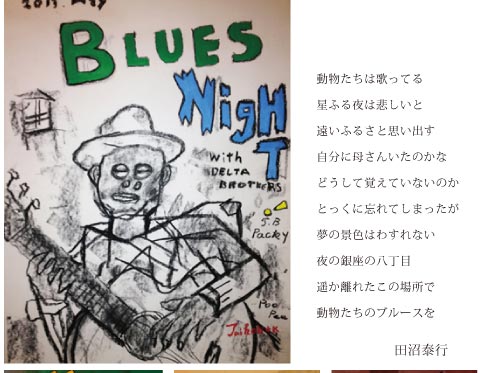 2013. May
BLUES
NigHT
With
DELTA
BROTHERS
S.B
Packy
Poo
Poo
動物たちは歌ってる
星ふる夜は悲しいと
遠いふるさと思い出す
自分に母さんいたのかな
どうして覚えていないのか
とっくに忘れてしまったが
夢の景色はわすれない
夜の銀座の八丁目
遥か離れたこの場所で
動物たちのブルースを
田沼泰行